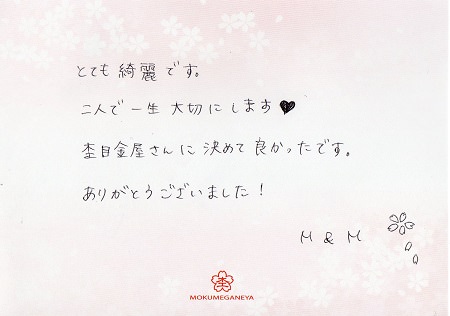 とても綺麗です。
二人で一生大切にします♥
杢目金屋さんに決めて良かったです。
ありがとうございました!
M & M
杢
MOKUMEGANEYA